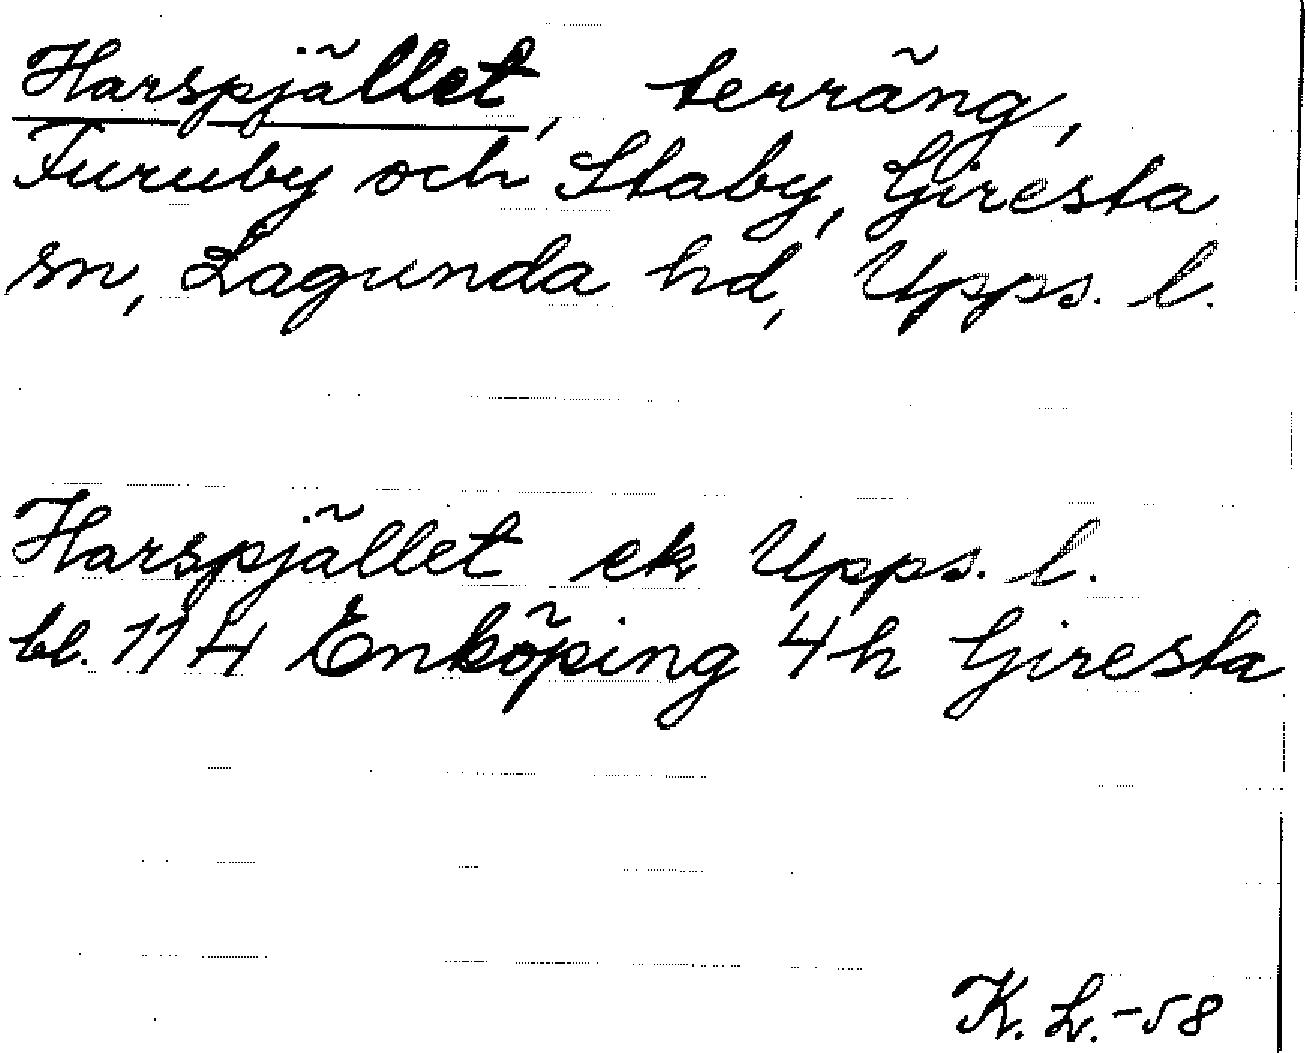 Harspjället, terräng,
Furuby och Staby, Giresta
sn, Lagunda hd, Upps. l.
Harspjället ek. Upps. l.
bl. 11 H Enköping 4h Giresta
K. L. -58